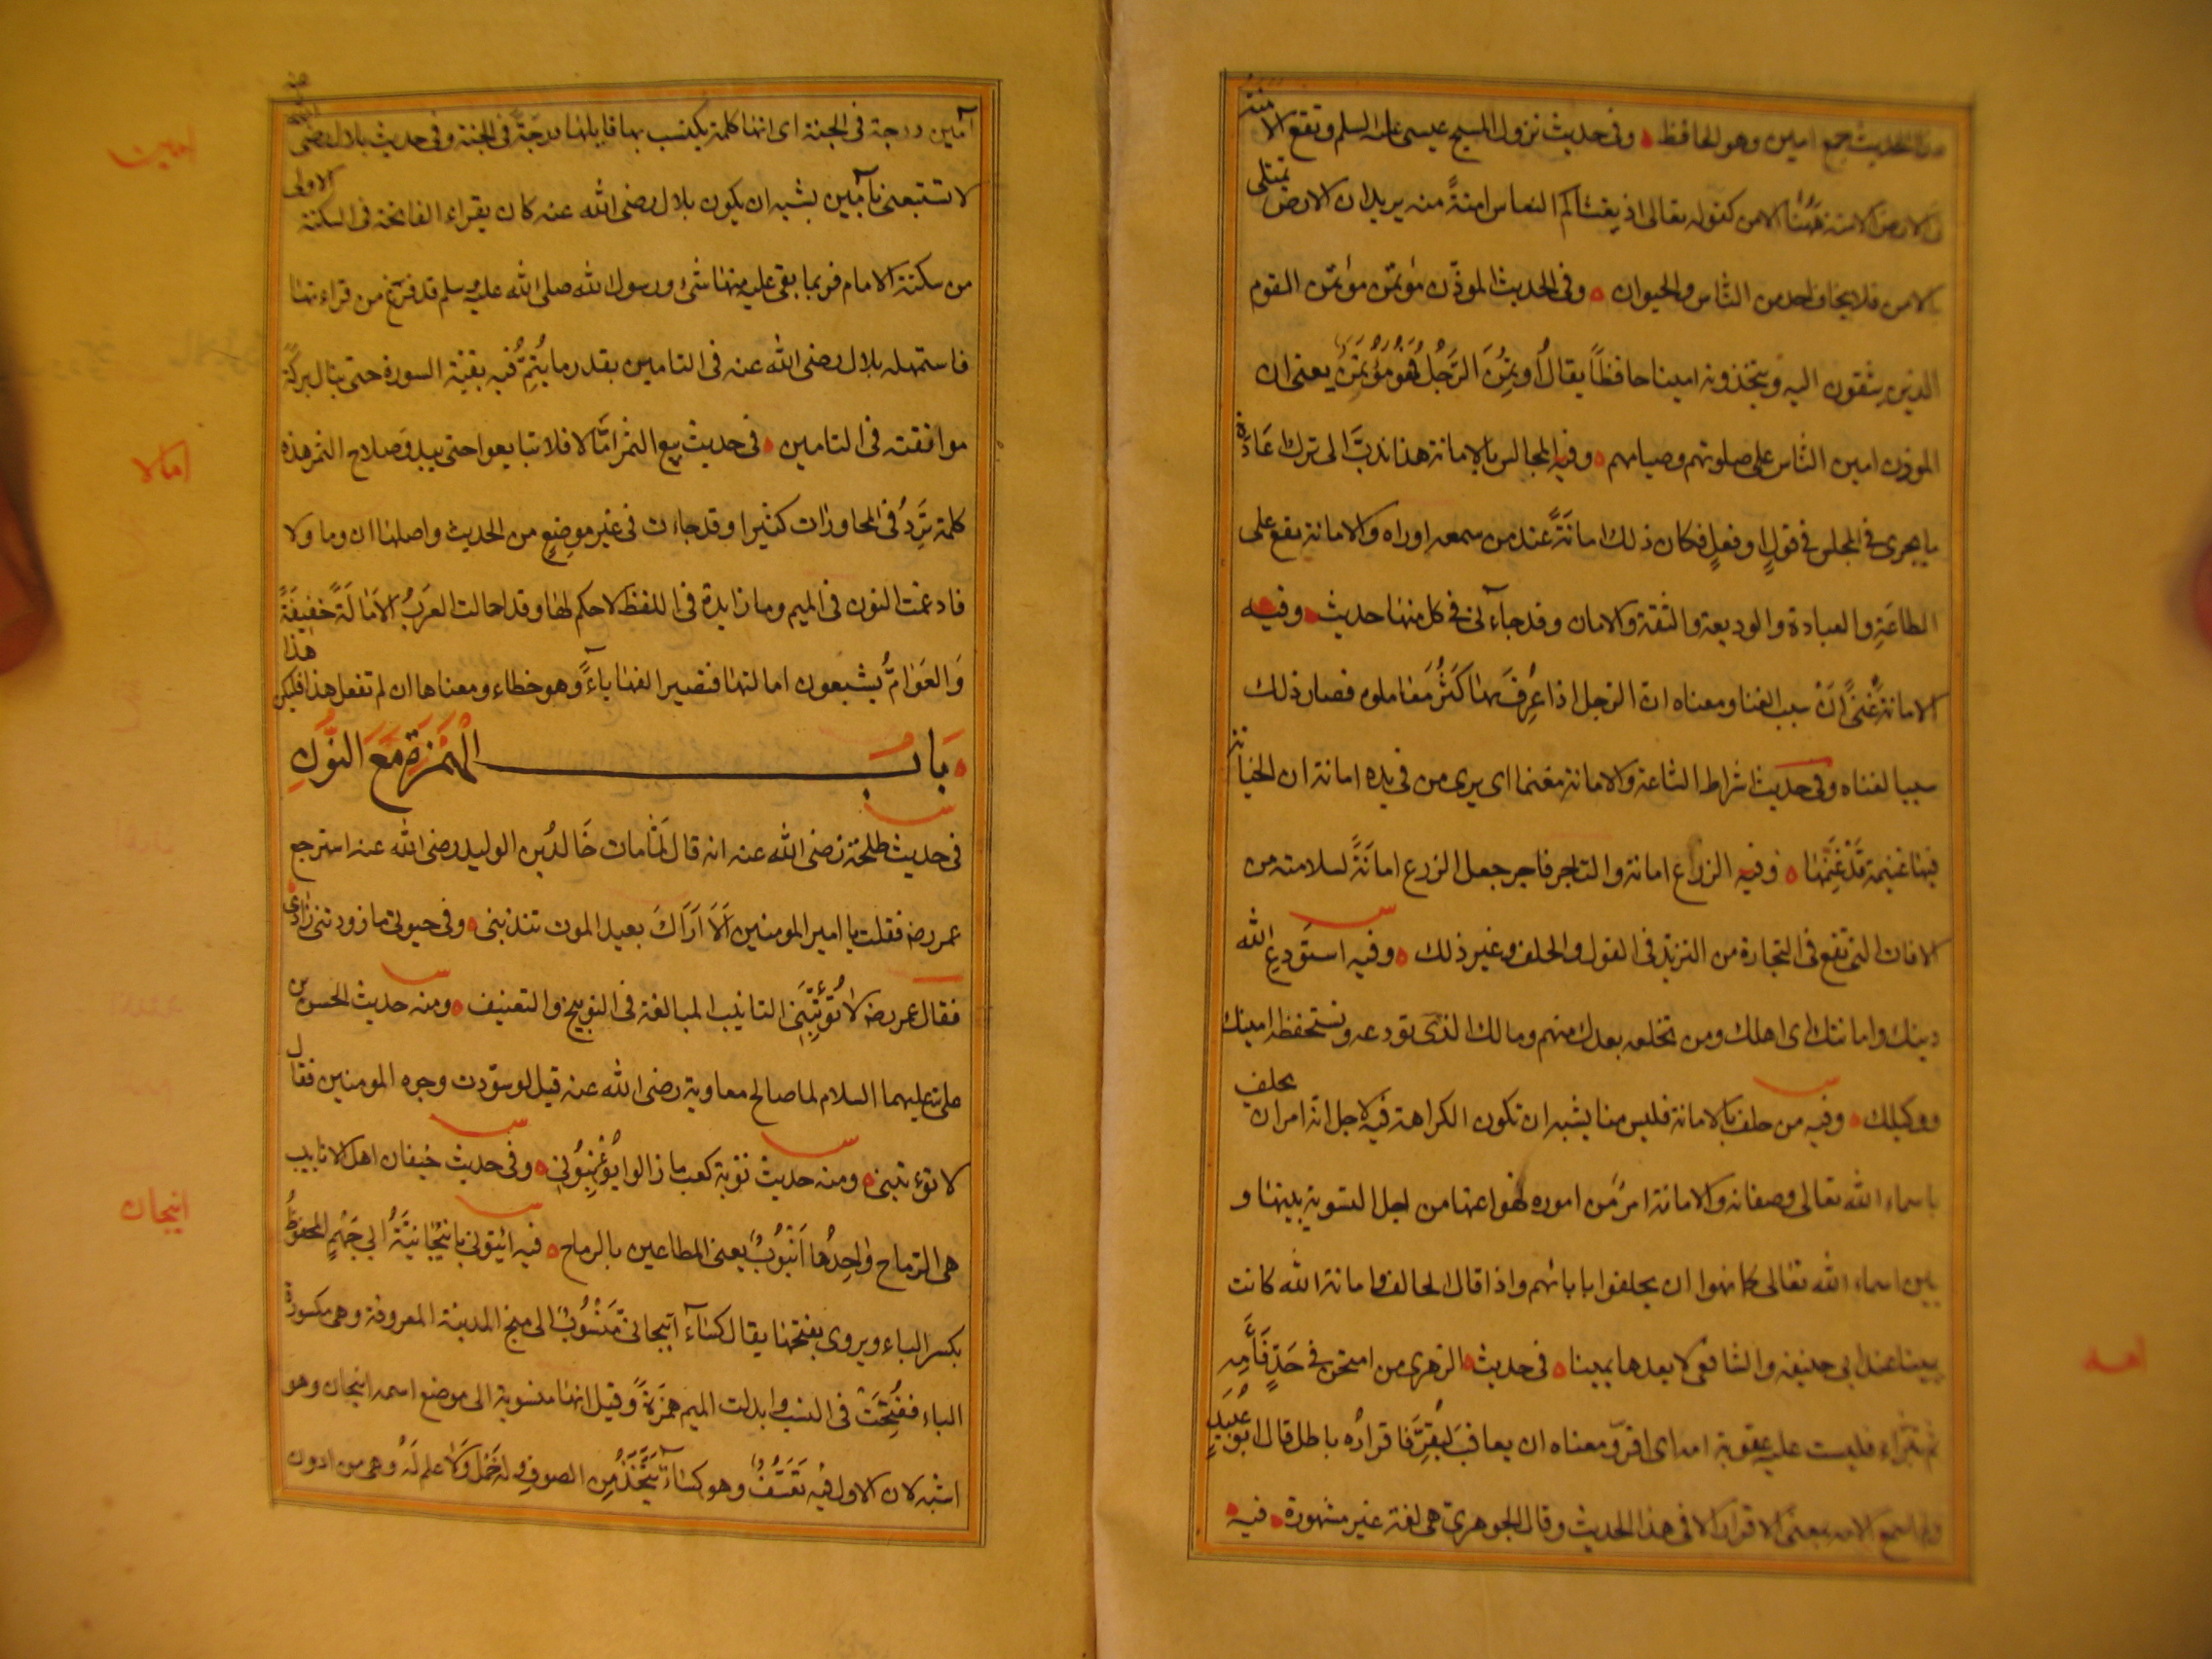 هذا الحديث جمع امين وهو الحافظ وفى حديث نزول المسيح عيسى عليه السلم وتقع الامنة
فى الارض الامنة هٰهُنا الامن كقوله تعالى اذ يغشاكم النعاس امنةً منه يريد ان الارض تمتلى
بالامن فلا يخاف احد من الناس والحيوان وفى الحديث الموذّن مؤتمن مؤتمن القوم
الذين يثقون اليه ويتخذونه امينا حافظاً يقال اُوتمِنَ الرَّجُلُ فَهُوَ مُؤْتَمَنٌ يعنى ان
الموذن امين الناس على صلوتهم وصيامهم وفيه المجالس بالامانة هذا ندبٌ الى ترك اعادة
ما يجرى فى المجلس فى قولٍ او فعلٍ فكان ذلك امانَةً عند من سمعه او راه والامانة تقع على
الطاعَةِ والعبادة والوديعة والثقة والامان وقد جاء فى كل منها حديث وفيه
الامانة غنًى اَىْ سبب الغنا ومعناه ان الرجل اذا عُرِفَ بها كَثُرَ مُعاملوه فصار ذلك
سببا لغناه وفى حديث اشراط الساعة والامانة مغنما اى يرى من فى يده امانة ان الخيانة
فيها غنيمة قَدْ غَنِمَها وفيه الزراع امانة والتاجر فاجر جعل الزرع امانَةً لسلامته من
الافات التى تقع فى التجارة من التزيّد فى القول والحلف وغير ذلك وفيه استَودِع الله
دينك وامانتك اى اهلك ومن تخلفه بعدك منهم ومالك الذى تودعه وتستحفظه امينك
ووكيلك وفيه من حلف بالامانة فليس منا يشبه ان تكون الكراهة فيه لاجل انّه امر ان يحلف
باسماء الله تعالى وصفاته والامانة امرٌ من اموره فنهوا عنها من اجل التسوية بينها و
بين اسماء الله تعالى كما نهوا ان يحلفوا بابائهم واذا قال الحالف وامانة الله كانت
يمينا عند ابى حنيفة والشافعى لا يعدها يمينا فى حديث الزهرى من امتحن فى حَدٍّ فَأَمِهَ
ثم تبرّاء فليست عليه عقوبة امه اى اقرّ ومعناه ان يعاقبَ لِيُقِرَّ فاقرارُه باطل قال ابو عُبَيدٍ
ولم اسمع الامه بمعنى الاقرار الا فى هذا الحديث وقال الجوهرىّ هى لغة غير مشهورة فيه
امه
آمين درجة فى الجنة اى انها كلمة يكتسب بها قايلها درجَةً فى الجنة وفى حديث بلال رضى الله عنه
لا تستبعنى بآمين يشبه ان يكون بلال رضى الله عنه كان يقراء الفاتحة فى السكتة الاولى
من سكتتى الامام فربما يبقى عليه منها شىء ورسول الله صلى الله عليه وسلم قد فرغ من قراءتها
فاستمهله بلال رضى الله عنه فى التامين بقدر ما يُتِمُّ فيه بقيّة السورة حتى ينال بركة
موافقته فى التامين فى حديث بيع الثمر امّا لا فلا تبايعوا حتى يبدو صلاح الثمر هذه
كلمة تَرِدُ فى المحاورات كثيرا وقد جاءت فى غير موضعٍ من الحديث واصلها ان وما ولا
فادغمت النون فى الميم وما زايدة فى اللفظ لا حكم لها وقد امالت العَرَبُ لا امالَةً خَفِيفَةً
وَالعَوَامُّ يشبعون امالتها فتصير الفها ياءً وهو خطاء ومعناها ان لم تفعل هذا فليكن هذا
بَابُ الهَمْزَةِ مَعَ النُّونِ
فى حديث طلحة رضى الله عنه انه قال لَمّا مات خَالِدُ بن الوليد رضى الله عنه استرجع
عمر رضه فقلت يا امير المومنين اَلَا اَرَاكَ بعيد الموت تندبنى وفى حيوتى ما زودتنى زادى
فقال عمر رضه لا تُؤَنِّبْنِى التانيب المبالغة فى التوبيخ والتعنيف ومنه حديث الحسن بن
على عليهما السلام لما صالح معاوية رضى الله عنه قيل له سوّدت وجوه المومنين فقال
لا تؤنبنى ومنه حديث توبة كعب ما زالوا يُؤَنِّبُونِى وفى حديث خيفان اهل الانابيب
هى الرماح واحِدُها اُنبُوبٌ يعنى المطاعين بالرماح فيه ائيتونى بانبِجَانِيَّةِ ابى جَهْمٍ المحفوظُ
بكسر الباء ويروى بفتحها يقال كساءٌ انبجانىّ مَنْسُوبٌ الى منبج المدينة المعروفة وهى مكسورة
الباء ففُتِحَتْ فى النسب وابدلت الميم هَمزَةً وقيل انها منسوبة الى موضع اسمه انبجان وهو
اشبه لان الاول فيه تَعَسُّفٌ وهو كساءٌ يُتَّخَذُ مِن الصوف له خَمْلٌ وَلا علم لَهُ وهى من ادون
امين
امالا
انبجان